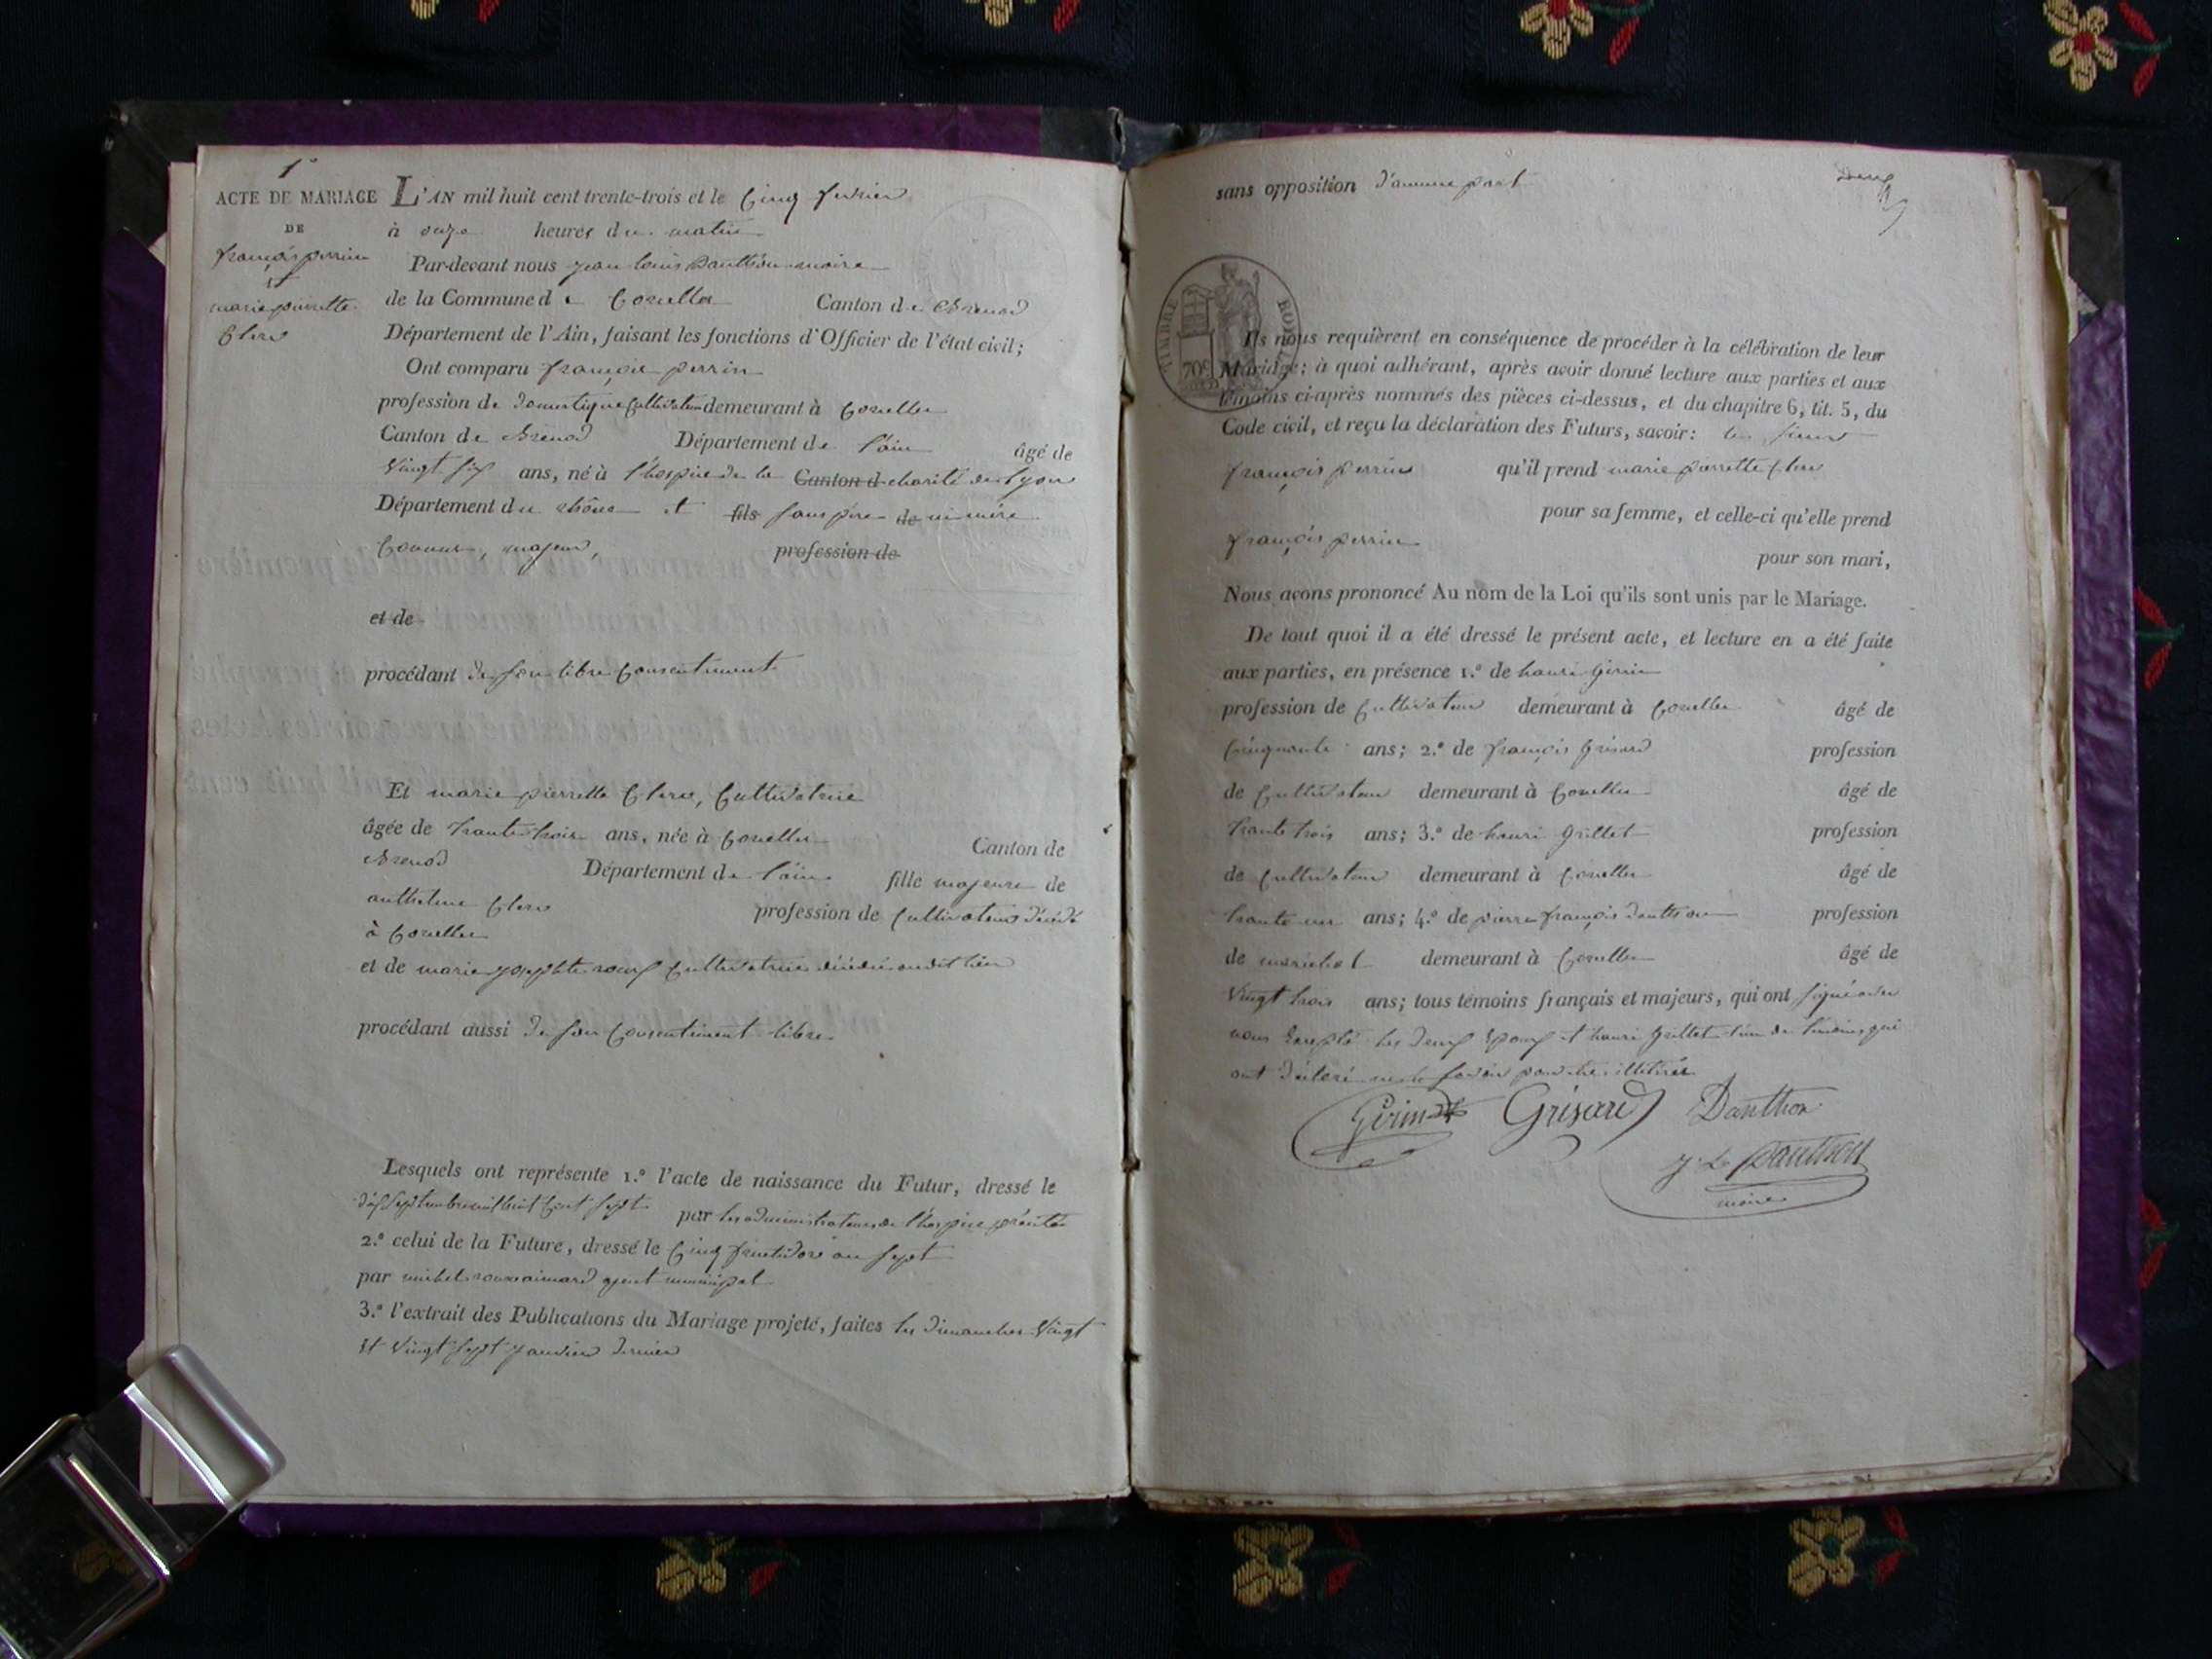 1°
ACTE DE MARIAGE
DE
françois perrin
et
marie pierrette
Clerc
L'AN mil huit cent trente-trois et le Cinq fevrier
à onze heures du matin
Par-devant nous jean louis Danthon maire
de la Commune de Corcelles Canton de Brenod
Département de l'Ain, faisant les fonctions d'Officier de l'état civil;
Ont comparu françois perrin
profession de domestique Cultivateur demeurant à Corcelles
Canton de Brenod Département de l'ain âgé de
Vingt six ans, né à l'hospice de la Canton d charité de Lyon
Département du rhône et fils sans père de ni mère
Connus, majeur, profession de
et de
procédant de son libre Consentement
Et marie pierrette Clerc, Cultivatrice
âgée de trente trois ans, née à Corcelles Canton de
Brenod Département de l'ain fille majeure de
anthelme Clerc profession de Cultivateur décédé
à Corcelles
et de marie josephte roux Cultivatrice décédée audit lieu
procédant aussi de son Consentement libre
Lesquels ont représenté 1.° l'acte de naissance du Futur, dressé le
dix septembre mil huit Cent sept par les administrateurs de l'hospice précité
2.° celui de la Future, dressé le Cinq fructidor an sept
par michel aimard agent municipal
3.° l'extrait des Publications du Mariage projeté, faites les dimanches Vingt
et Vingt sept janvier dernier
Deux
sans opposition d'aucune part
TIMBRE ROYAL
70c
Ils nous requièrent en conséquence de procéder à la célébration de leur
Mariage; à quoi adhérant, après avoir donné lecture aux parties et aux
témoins ci-après nommés des pièces ci-dessus, et du chapitre 6, tit. 5, du
Code civil, et reçu la déclaration des Futurs, savoir: le sieur
françois perrin qu'il prend marie pierrette Clerc
pour sa femme, et celle-ci qu'elle prend
françois perrin
pour son mari,
Nous avons prononcé Au nom de la Loi qu'ils sont unis par le Mariage.
De tout quoi il a été dressé le présent acte, et lecture en a été faite
aux parties, en présence 1.° de henri Girin
profession de Cultivateur demeurant à Corcelles âgé de
Cinquante ans; 2.° de françois Grisard profession
de Cultivateur demeurant à Corcelles âgé de
trente trois ans; 3.° de henri Grillet profession
de Cultivateur demeurant à Corcelles âgé de
trente un ans; 4.° de pierre françois danthon profession
de maréchal demeurant à Corcelles âgé de
Vingt trois ans; tous témoins français et majeurs, qui ont signé avec
nous Excepté les deux Epoux et henri Grillet l'un des témoins qui
ont déclaré ne le savoir pour être illitérés
Girin Grisard Danthon
J. L. Danthon
maire